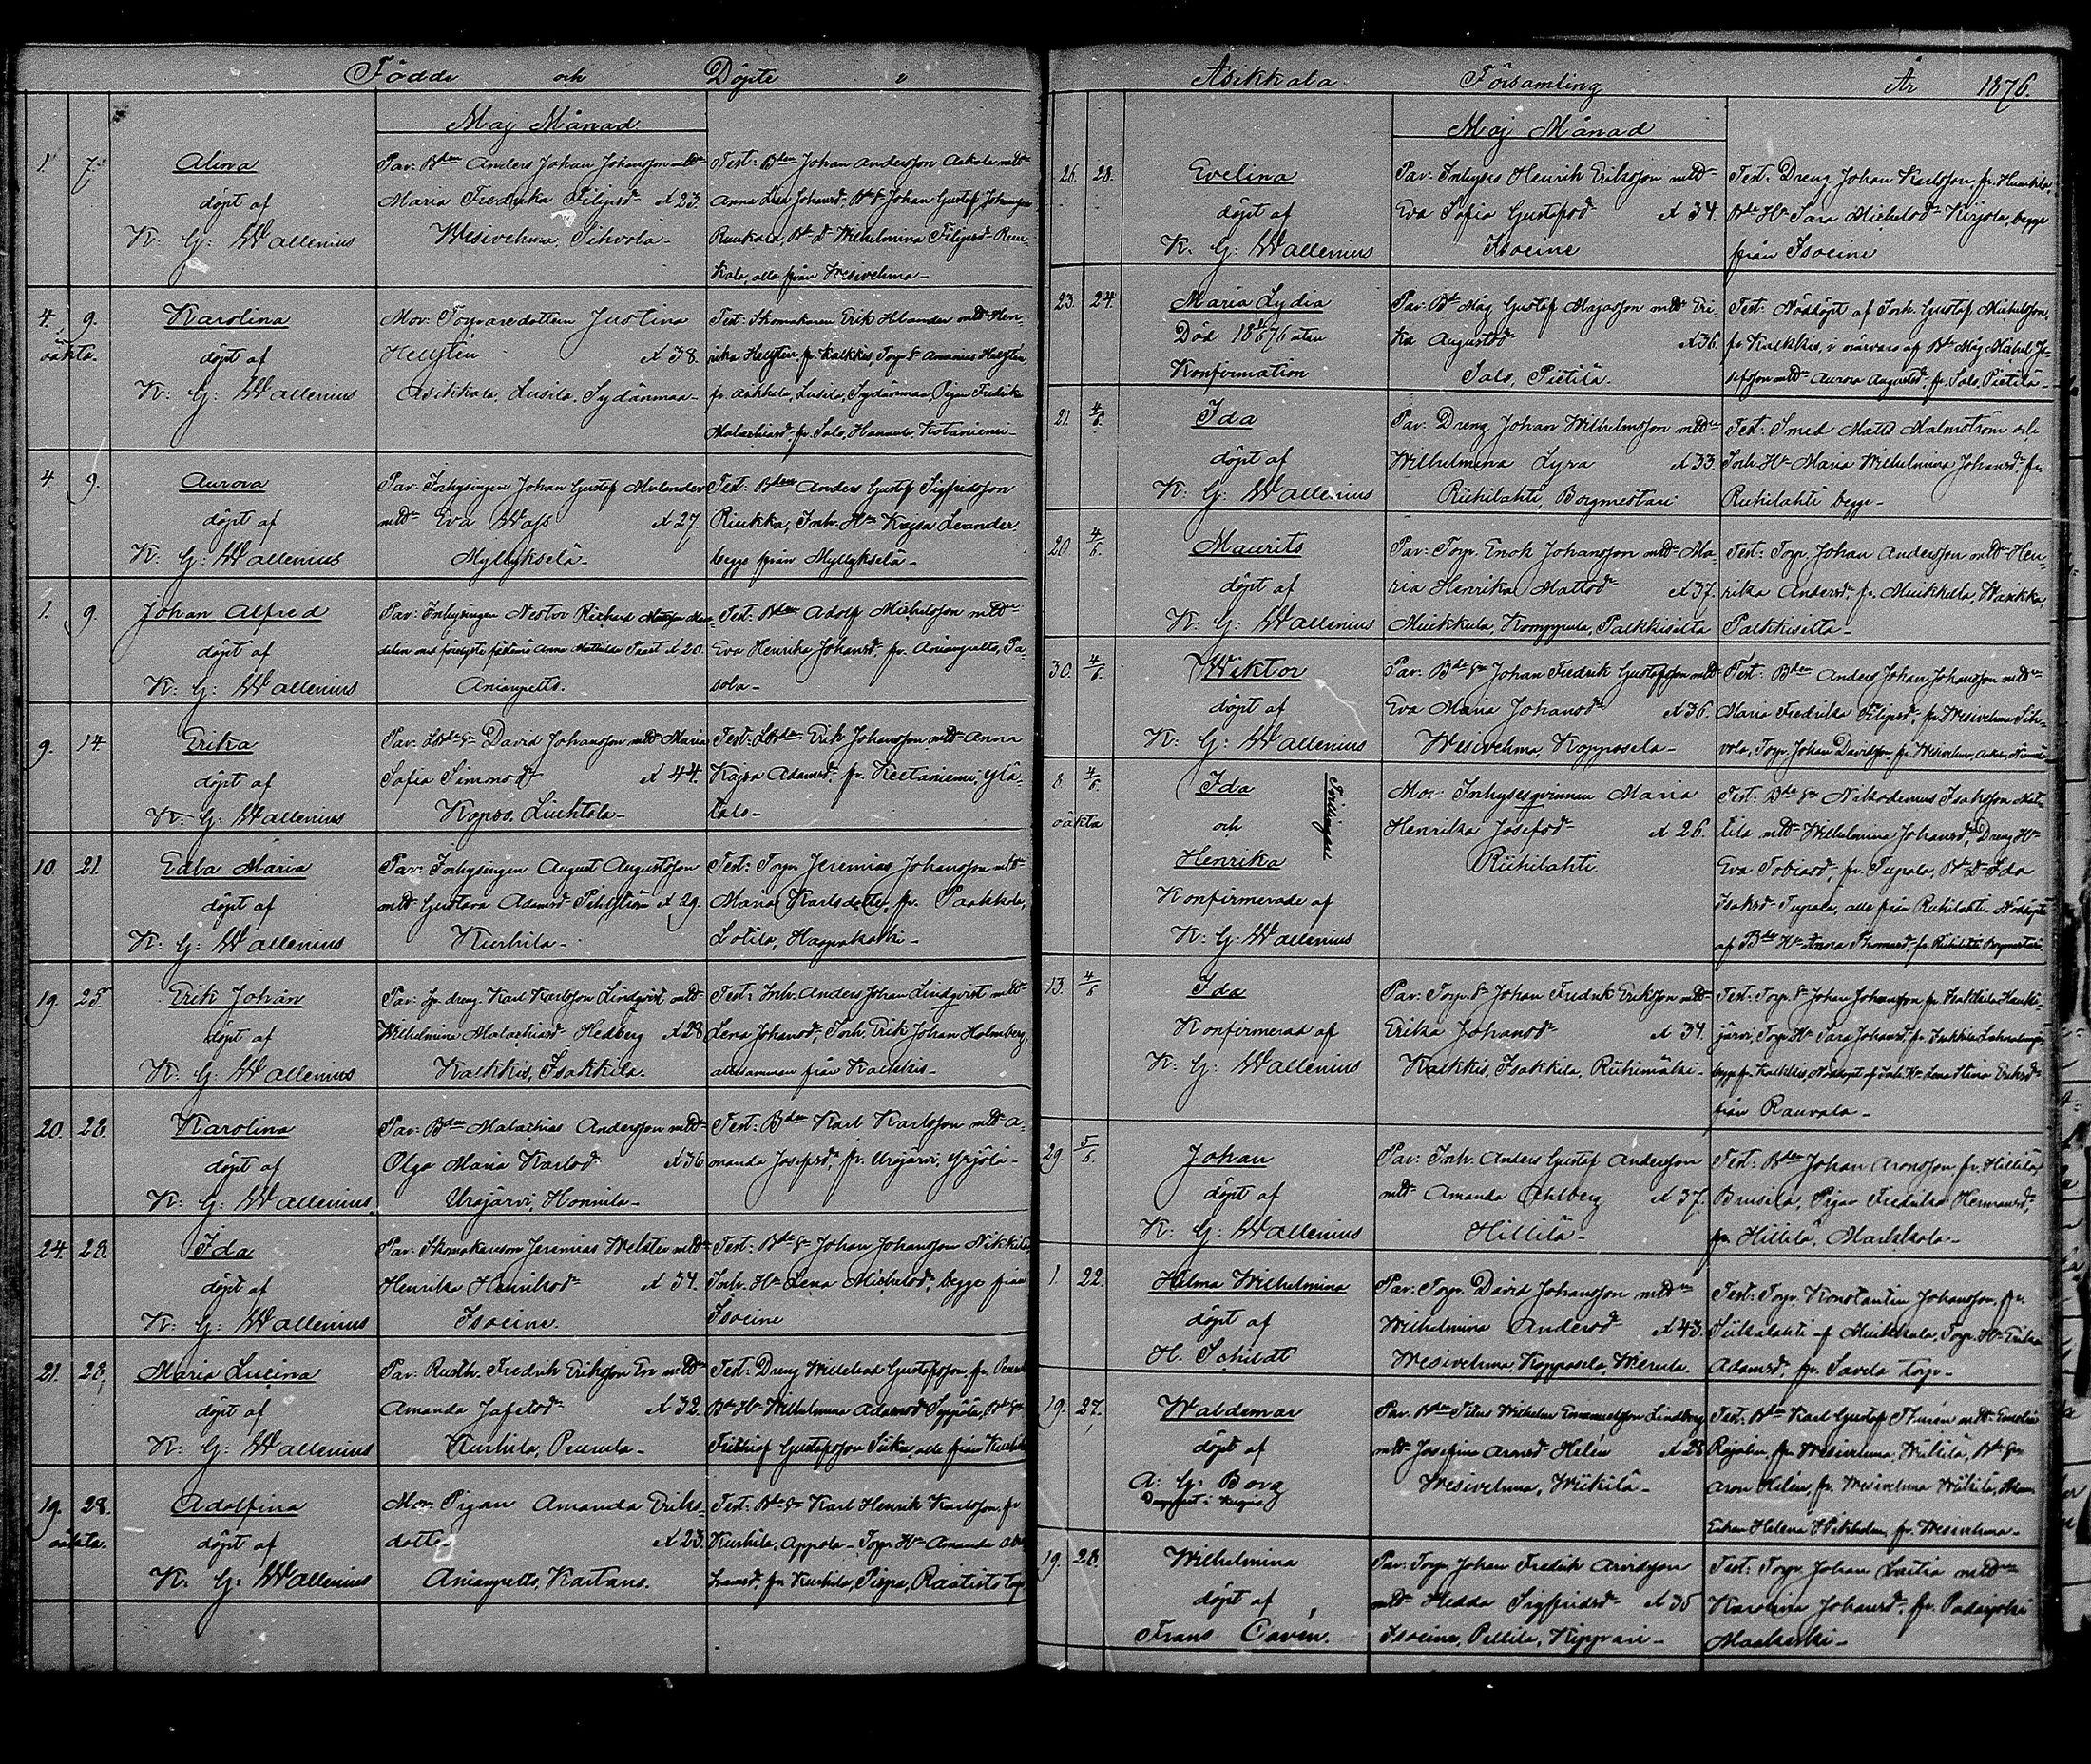 Födde och Döpte i
Maj Månad
1. 7. Alina
döpt af
K: G: Wallenius
Par: Bden Anders Johan Johansson mtd
Maria Fredrika Filipsd A 23.
Wesivehma, Sihvola-
Test: Bden Johan Andersson Askola mtd
Anna Lisa Johansd, Bds Johan Gustaf Johansson
Ruukala, Bdd Wilhelmina Filipsd Ruu-
kala, alla från Wesivehma-
4. 9. Karolina
oäkta. döpt af
K: G: Wallenius
Mor: Torparedottern Justina
Hellsten A 38.
Asikkala, Lusila, Sydänmaa-
Test: Skomakaren Erik mtd Hen-
rika Hellsten fr. Kalkkis, Torp.s Ananias Hellsten
fr. Asikkala, Lusila, Sydänmaa, Pigan Fredrika
Malachiasd fr. Salo, Kotaniemi-
4. 9. Aurora
döpt af
K: G: Wallenius
Par: Inhysingen Johan Gustaf Melander
mtd Eva Wass A 27.
Myllykselä-
Test: Bden Anders Gustaf Sigfridsson
Riukka, Inh. Hu Kajsa Leander
begge från Myllykselä-
1. 9. Johan Alfred
döpt af
K: G: Wallenius
Par: Inhysingen Nestor Richard
Anna Mathilda A 20.
Anianpelto.
Test: Bden Adolf Michelsson mtd
Eva Henrika Johansd fr. Anianpelto, Ta-
sola-
9. 14 Erika
döpt af
K: G: Wallenius
Par: David Johansson mtd Maria
Sofia Simonsd A 44.
Kopso, Liuhtola-
Test: Erik Johansson mtd Anna
Kajsa Adamsd fr. Keltaniemi, Ylä-
talo-
10. 21. Edla Maria
döpt af
K: G: Wallenius
Par: Inhysingen August Augustsson
mtd Gustava Adamsd Pihlström A 29.
Kurhila-
Test: Torp. Jeremias Johansson mtd
Maria Karlsdotter fr. Paakkola,
Lotila, Haapakoski-
19. 25. Erik Johan
döpt af
K: G: Wallenius
Par: dreng Karl Karlsson Lindqvist mtd
Wilhelmina Malachiasd Hedberg A 28
Kalkkis, Isakkila.
Test: Inh. Anders Johan Lindqvist mtd
Lena Johansd, Inh. Erik Johan Holmberg,
allesamman från Kalkkis-
20. 28. Karolina
döpt af
K: G: Wallenius
Par: Bden Malachias Andersson mtd
Olga Maria Karlsd A 36
Urajärvi, Honnila-
Test: Bden Karl Karlsson mtd A-
manda Josefsd, fr. Urajärvi, Yrjölä-
24. 28. Ida
döpt af
K: G: Wallenius
Par: Skomakaren Jeremias Melster mtd
Henrika Henriksd A 34.
Isoeine.
Test: Bds Johan Johansson Nikkilä
Inh. Hu Lena Michelsd, begge från
Isoeine
21. 28. Maria Lucina
döpt af
K: G: Wallenius
Par: Rusth. Fredrik Eriksson mtd
Amanda Jafetsd A 32.
Kurhila, Peurula-
Test: Dreng Willehad Gustafsson fr.
Bde Hu Wilhelmina Adamsd Seppälä,
Frithiof Gustafsson Siika, alla från Kurhila
19. 28. Adolfina
oäkta. döpt af
K: G: Wallenius
Mor: Pigan Amanda Eriks-
dotter A 23.
Anianpelto, Kartano.
Test: Bds Karl Henrik Karlsson fr.
Kurhila, Appola- Torp. Hu Amanda Abra-
hamsd fr. Kurhila, Torp
Asikkala Församling År 1876.
Maj Månad
26. 28. Evelina
döpt af
K: G: Wallenius
Par: Inhyses Henrik Eriksson mtd
Eva Sofia Gustafsd A 34.
Isoeine
Test: Dreng Johan Karlsson, fr. Huukila,
Bde Hu Sara Michelsd Kirjola, begge
från Isoeine
23. 24. Maria Lydia
Död 18 76 utan
Konfirmation
Par: Bde Måg Gustaf Majasson mtd Eri-
ka Augustsd A 36.
Salo, Pietilä.
Test: Nöddöpt af Inh. Gustaf Michelsson,
fr. Kalkkis, i närvaro af Bde Måg Michel Jo-
sefsson mtd Aurora Augustsd, fr. Salo, Pietilä-
21. 4/6. Ida
döpt af
K: G: Wallenius
Par: Dreng Johan Wilhelmsson mtd
Wilhelmina Lyra A 33.
Riihilahti, Borgmestari
Test: Smed Matts Malmström och
Inh. Hu Maria Wilhelmina Johansd fr.
Riihilahti begge-
20. 4/6. Maurits
döpt af
K: G: Wallenius
Par: Torp. Enok Johansson mtd Ma-
ria Henrika Mattsd A 37.
Muikkula, Komppula, Palkkisilta
Test: Torp. Johan Andersson mtd Hen-
rika Andersd fr. Muikkula,
Palkkisilta-
30. 4/6. Wiktor
döpt af
K: G: Wallenius
Par: Bds Johan Fredrik Gustafsson mtd
Eva Maria Johansd A 36.
Wesivehma, Kopposela-
Test: Bden Anders Johan Johansson mtd
Maria Fredrika Filipsd, fr. Wesivehma Sih-
vola, Torp. Johan Davidsson fr. Wesivehma,
8. 4/6. Ida
oäkta och Tvillingar
Henrika
Konfirmerade af
K: G: Wallenius
Mor: Inhysesqvinnan Maria
Henrika Josefsd A 26.
Riihilahti.
Test: Bds Nikodemus Isaksson Mat-
tila mtd Wilhelmina Johansd, Dreng Hu
Eva Tobiasd, fr. Tupala, Bdd Ida
Isaksd Tupala, alla från Riihilahti- Nöddöpte
af Bde Hu Anna Thomasd fr. Riihilahti Borgmestari.
13. 4/6 Ida
Konfirmerad af
K: G: Wallenius
Par: Torp.s Johan Fredrik Eriksson mtd
Erika Johansd A 34.
Kalkkis, Isakkila, Riihimäki-
Test: Torp.s Johan Johansson fr. Isakkila Hauki-
järvi, Torp. Hu Sara Johansd, fr. Isakkila
begge fr. Kalkkis, Nöddöpt af Inh. Hu Lena Stina Eriksd
från Rauvala-
29. 5/6. Johan
döpt af
K: G: Wallenius
Par: Inh. Anders Gustaf Andersson
mtd Amanda Ahlberg A 37.
Hillilä-
Test: Bden Johan Aronsson fr. Hillilä
Brusila, Pigan Fredrika Hermansd,
fr. Hillilä, Markkola-
1. 22. Hilma Wilhelmina
döpt af
H. Schildt
Par: Torp. David Johansson mtd
Wilhelmina Andersd A 43.
Wesivehma, Kopposela, Wierula.
Test: Torp. Konstantin Johansson, fr.
af Muikkula, Torp. Hu Erika
Adamsd, fr. Savela torp-
19. 27. Waldemar
döpt af
A: G: Borg
Par: Bden Titus Wilhelm Emanuelsson Lindberg
mtd Josefina Aronsd Helén A 28
Wesivehma, Wiikilä-
Test: Bden Karl Gustaf Thurén mtd Emelie
fr. Wesivehma, Wiikilä,
Aron Helén, fr. Wesivehma Wiikilä,
Helena fr. Wesivehma-
19. 28. Wilhelmina
döpt af
Frans Cavén.
Par: Torp. Johan Fredrik Arvidsson
mtd Hedda Sigfridsd A 35
Isoeine, Pellila, Kippari-
Test: Torp. Johan Laitia mtd
Karolina Johansd, fr. Padasjoki
Maakeski-